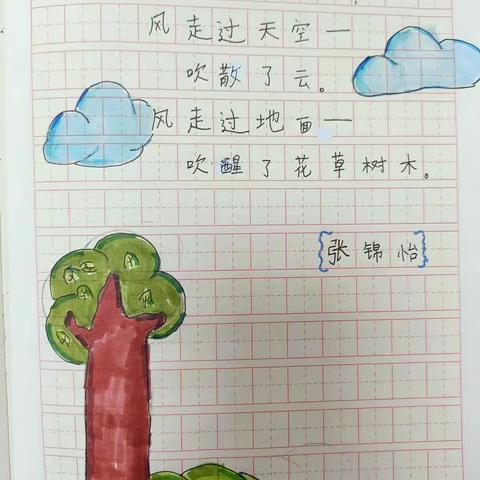 风走过天空—
吹散了云。
风走过地面—
吹醒了花草树木。
{张锦怡}